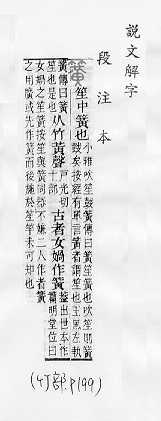 說文解字
段注本
簧
笙中簧也
小雅吹笙鼓簧傳曰簧笙簧也吹笙則簧
鼓矣按經有單言簧者謂笙也王風左執
簧傳曰簧
笙也是也
从竹黃聲
戶光切
十部
古者女媧作簧
蓋出世本作
篇明堂位曰
女媧之笙簧按笙與簧同器不嫌二人作者簧
之用廣或先作簧而後施於笙竽未可知也
(竹部.P199)